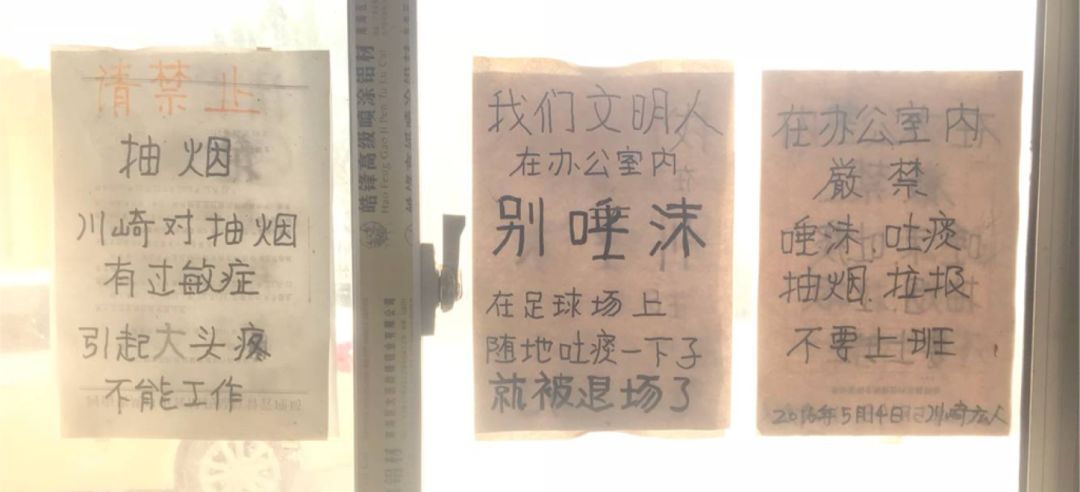 请禁止
抽烟
川崎对抽烟
有过敏症
引起大头疼
不能工作
皓锋高级喷涂铝材
Hao Feng Gao Ji Pen Tu Lu Cai
我们文明人
在办公室内
别唾沫
在足球场上
随地吐痰一下子
就被退场了
在办公室内
厳禁
唾沫 吐痰
抽烟 垃圾
不要上班
5月4日 川崎广人